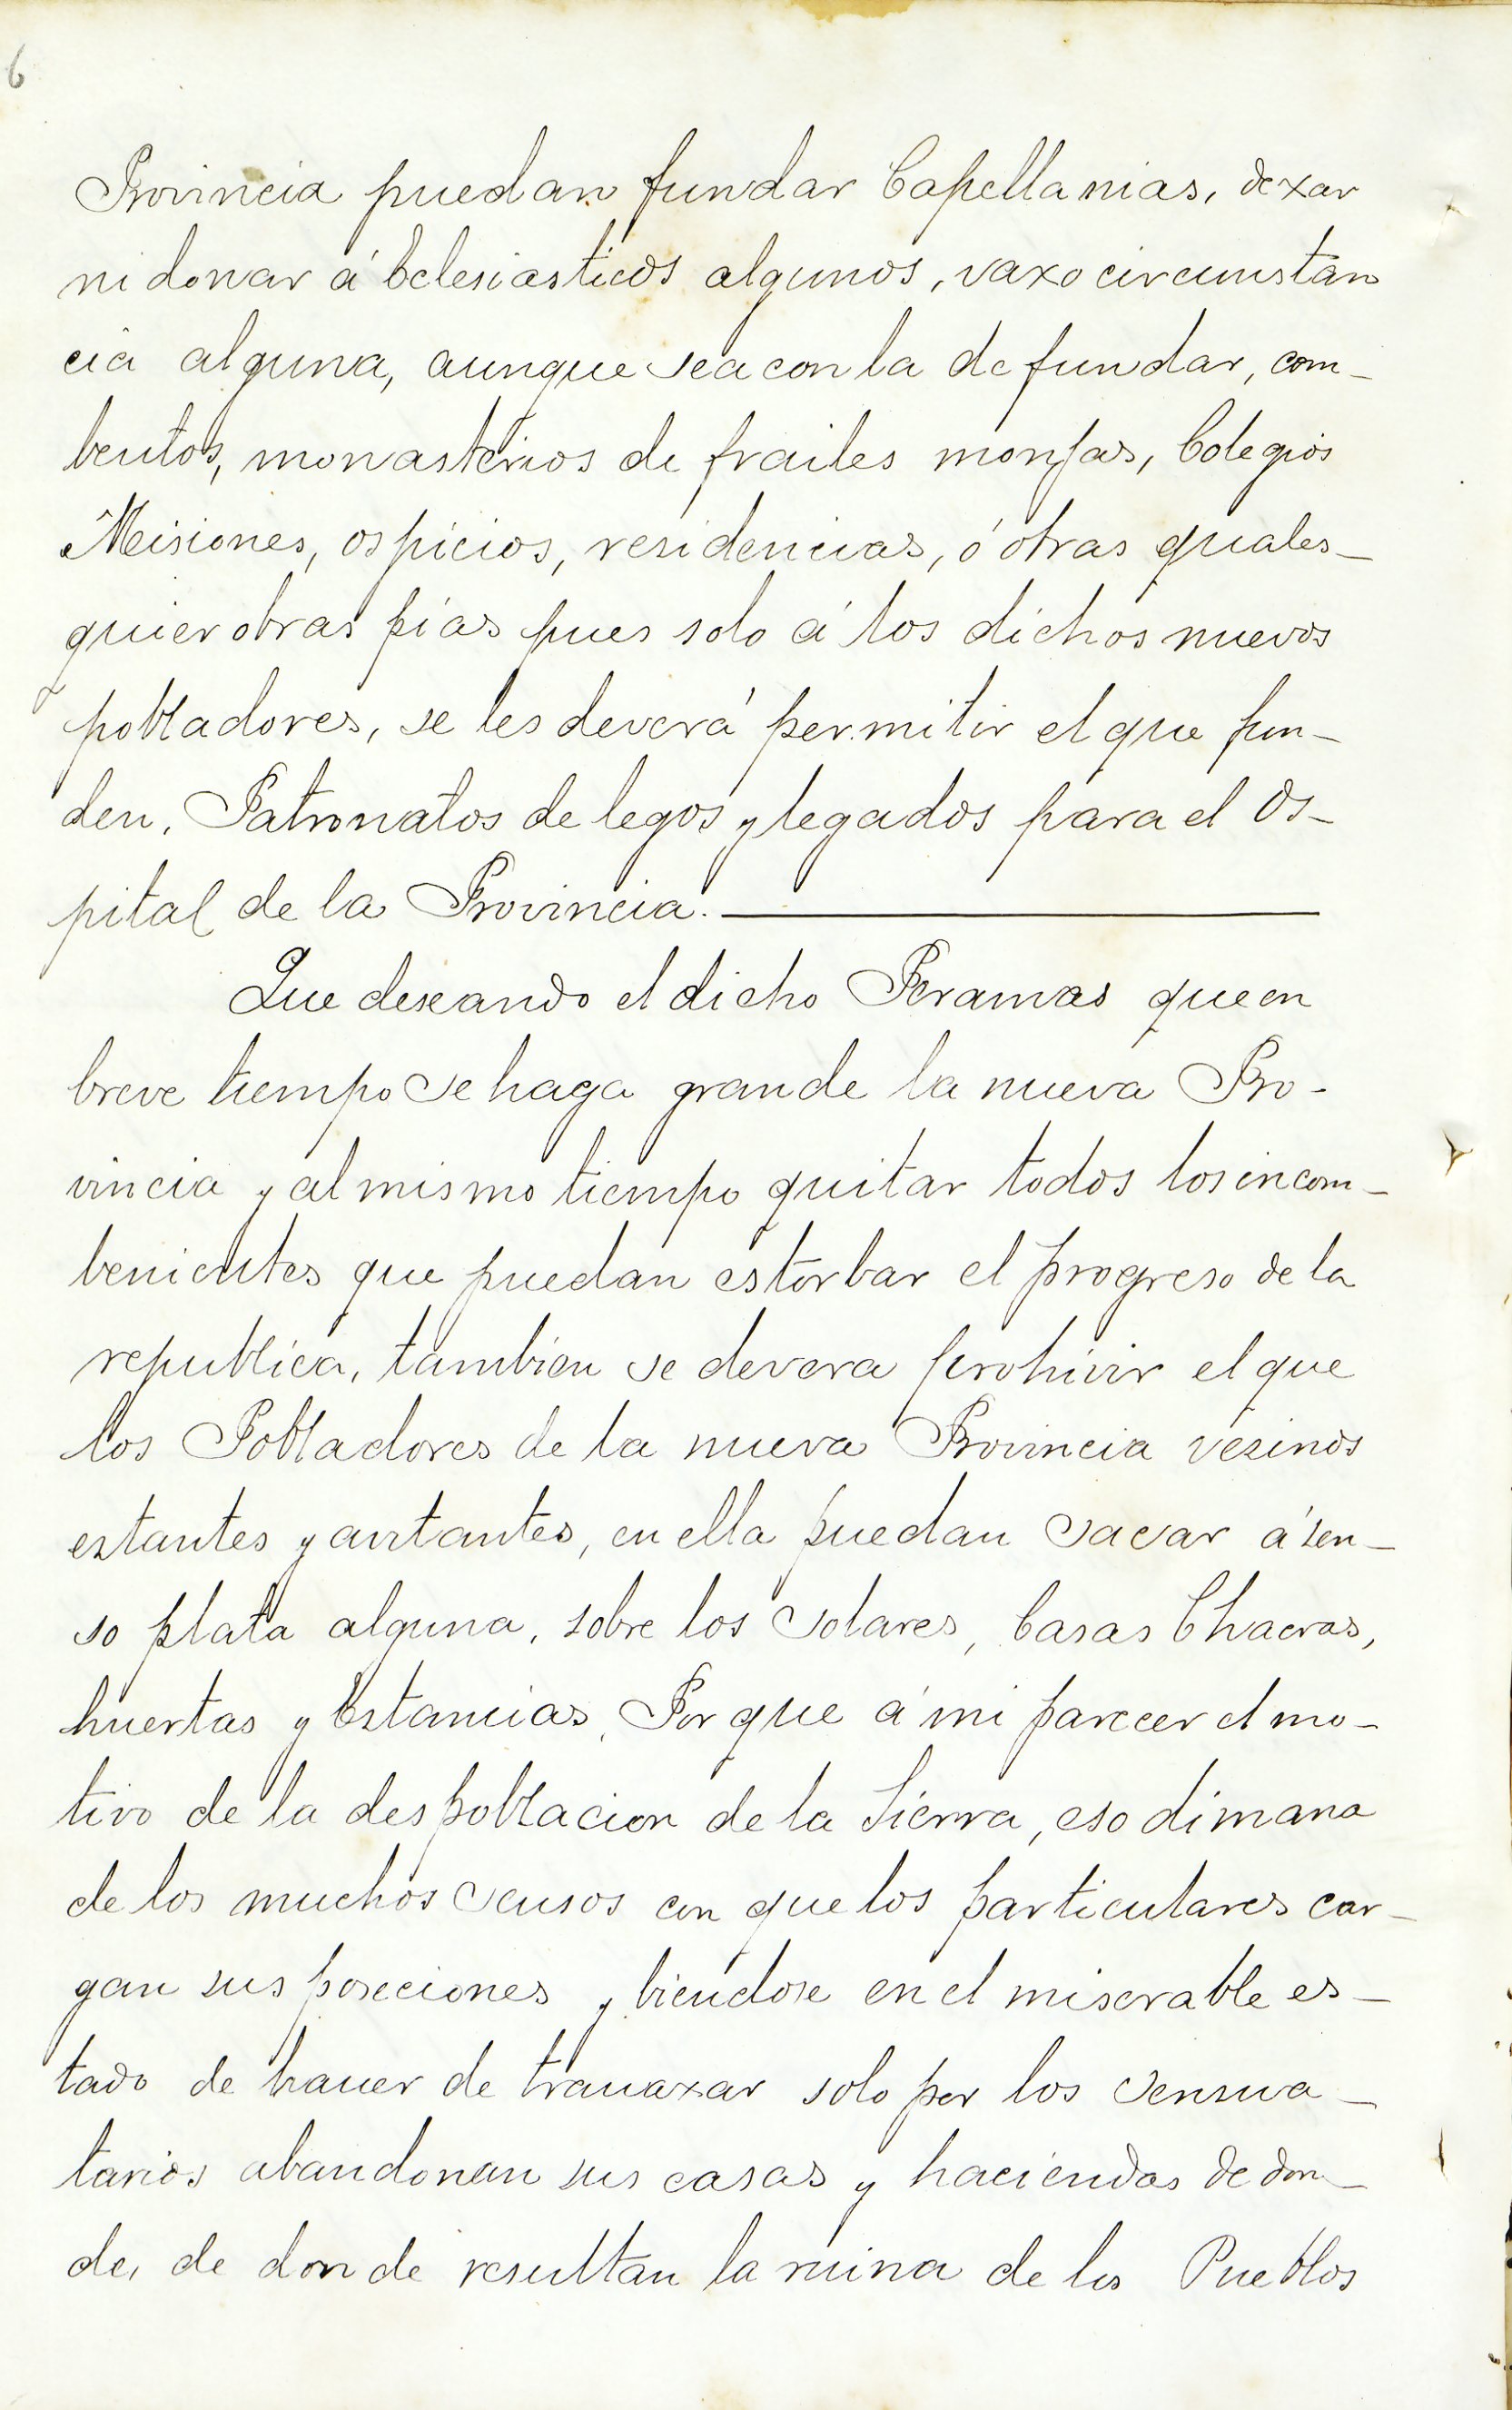 6
Provincia puedan fundar Capellanias, dexar
ni donar á Eclesiasticos algunos, vaxo circunstan
cia alguna, aunque sea con la de fundar, com-
bentos, monasterios de frailes monjas, Colegios
Misiones, ospicios, residencias, ó otras quales-
quier obras pias pues solo á los dichos nuevos
pobladores, se les deverá permitir el que fun-
den, Patronatos de legos y legados para el Os-
pital de la Provincia.
Que deseando el dicho Peramas que en
breve tiempo se haga grande la nueva Pro-
vincia y al mismo tiempo quitar todos los incom-
benientes que puedan estorbar el progreso de la
republica, tambien se devera prohivir el que
los Pobladores de la nueva Provincia vesinos
estantes y avitantes, en ella puedan sacar á sen-
so plata alguna, sobre los solares, Casas Chacras,
huertas y Estancias, Por que á mi parecer el mo-
tivo de la despoblacion de la Sierra, eso dimana
de los muchos sensos con que los particulares car-
gan sus poseciones y biendose en el miserable es-
tado de haver de travaxar solo por los sensua-
tarios abandonan sus casas y haciendas de don-
de, de donde resultan la ruina de los Pueblos